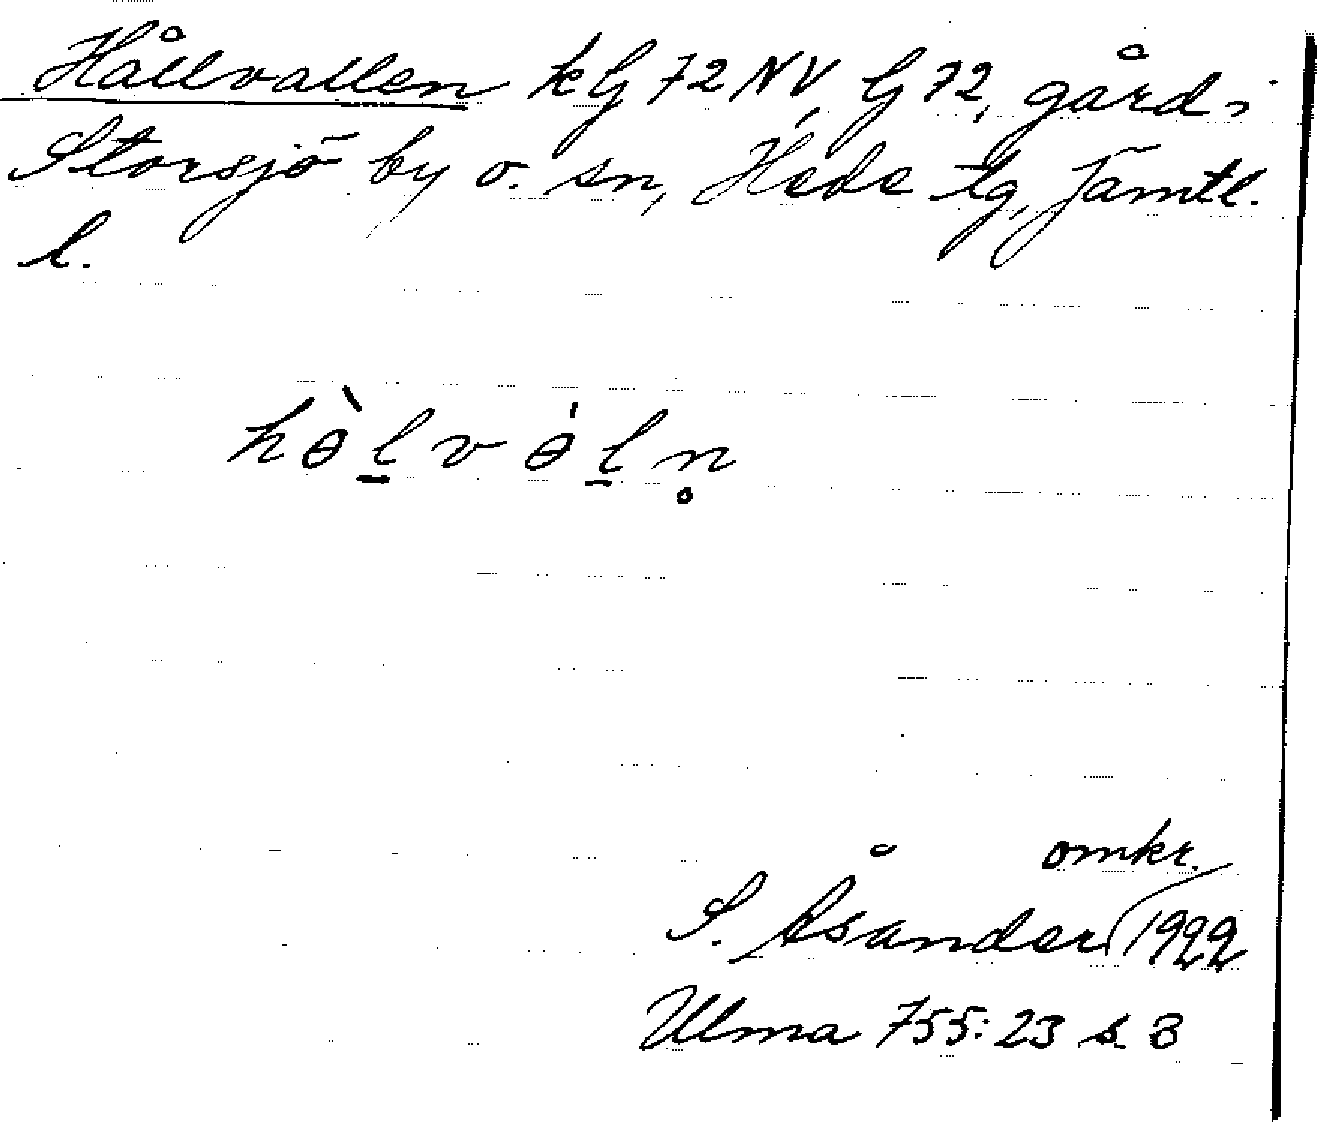 Hållvallen kG 72 NV G 72, gård i
Storsjö by o. sn, Hede tg, Jämtl.
l.
hɵ̀l̠vɵ̇l̠n̥
omkr.
S. Åsander 1922
Ulma 755:23 s. 3